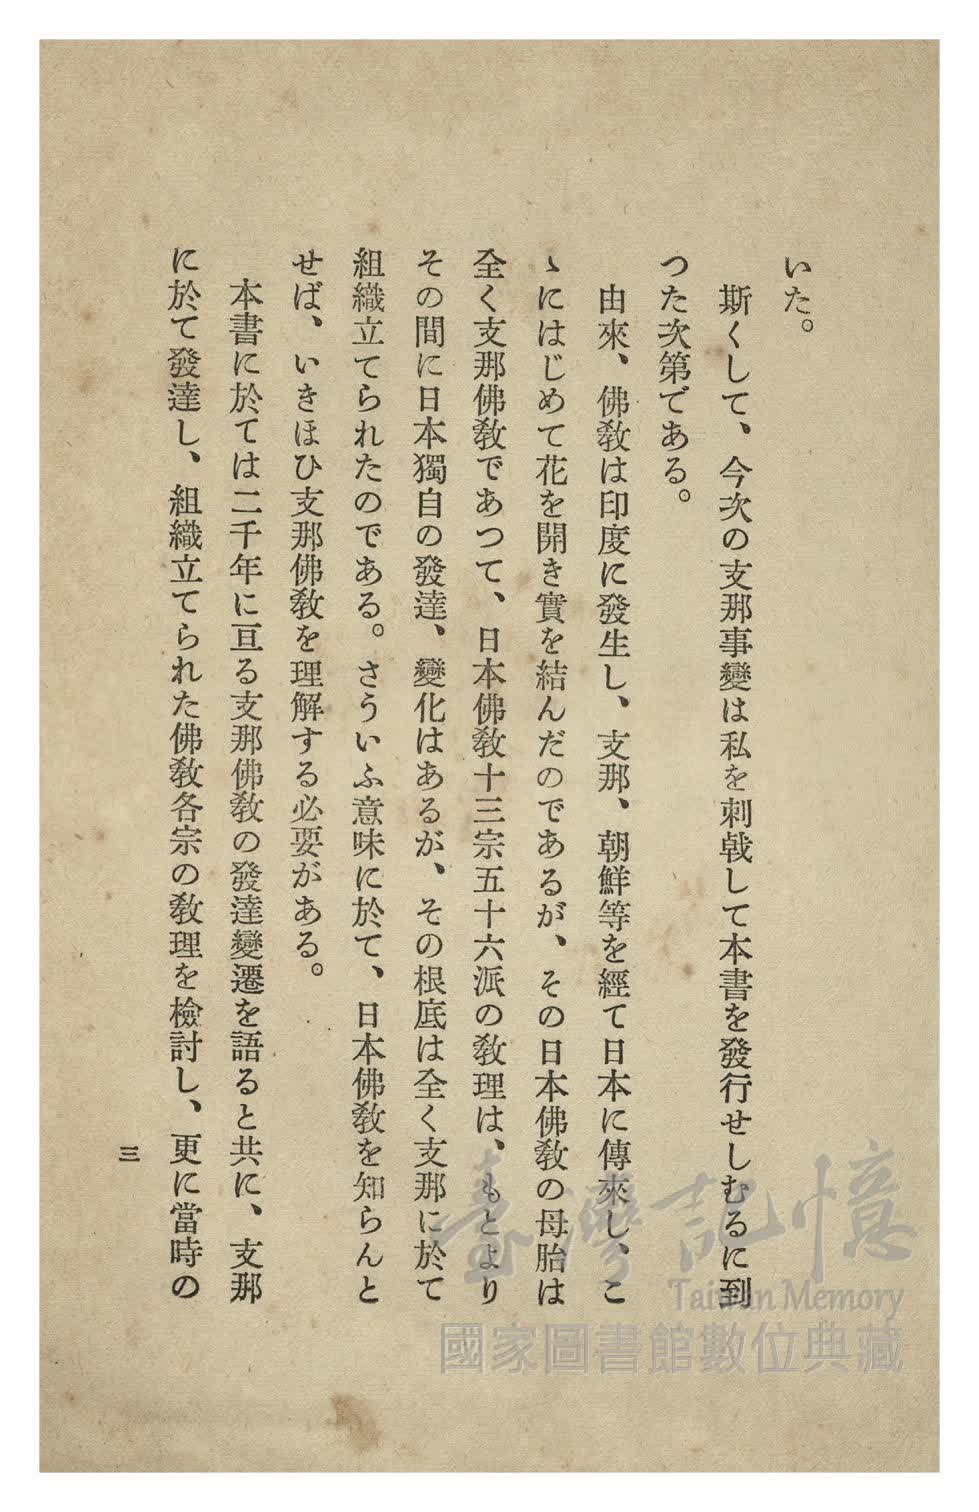 いた。
斯くして、今次の支那事變は私を刺戟して本書を發行せしむるに到
つた次第である。
由來、佛敎は印度に發生し、支那、朝鮮等を經て日本に傳來し、こ
ゝにはじめて花を開き實を結んだのであるが、その日本佛敎の母胎は
全く支那佛敎であつて、日本佛敎十三宗五十六派の敎理は、もとより
その間に日本獨自の發達、變化はあるが、その根底は全く支那に於て
組織立てられたのである。さういふ意味に於て、日本佛敎を知らんと
せば、いきほひ支那佛敎を理解する必要がある。
本書に於ては二千年に亙る支那佛敎の發達變遷を語ると共に、支那
に於て發達し、組織立てられた佛敎各宗の敎理を檢討し、更に當時の
三
臺灣記憶
Taiwan Memory
國家圖書館數位典藏